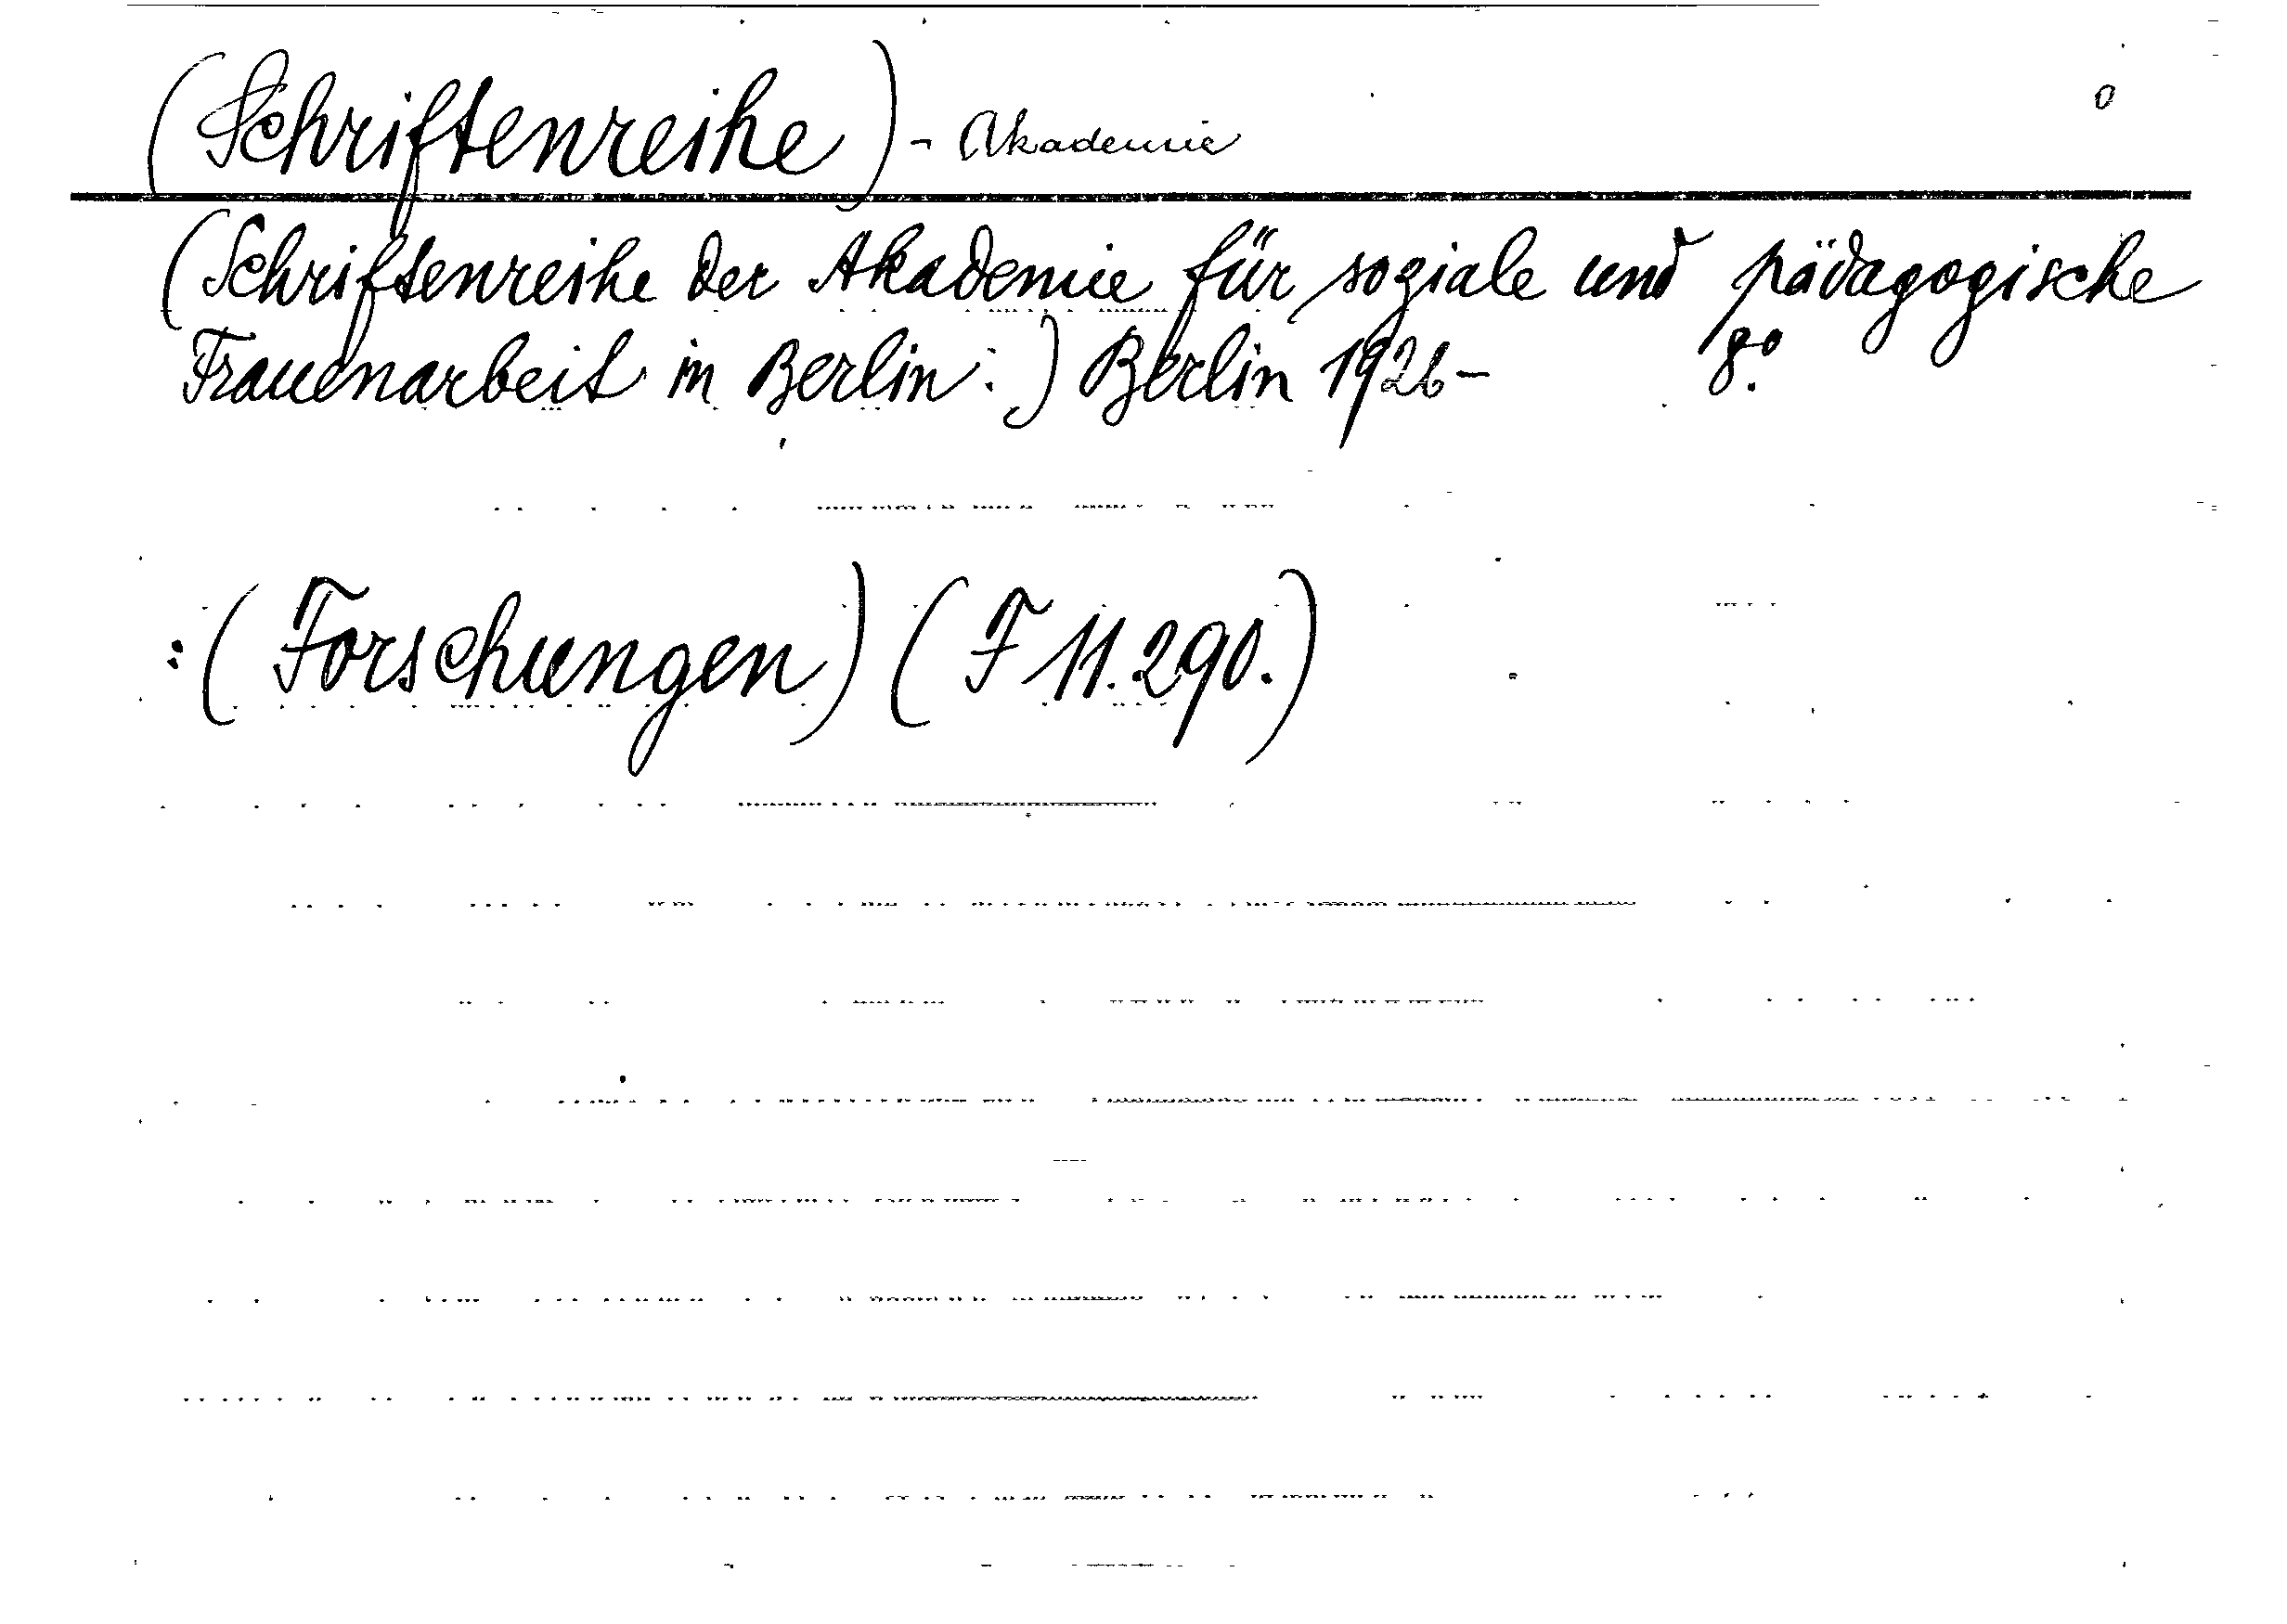 (Schriftenreihe) - Akademie 0
(Schriftenreihe der Akademie für soziale und pädagogische
Frauenarbeit in Berlin:) Berlin 1926- 8º.
:(Forschungen) (F 11.290.)